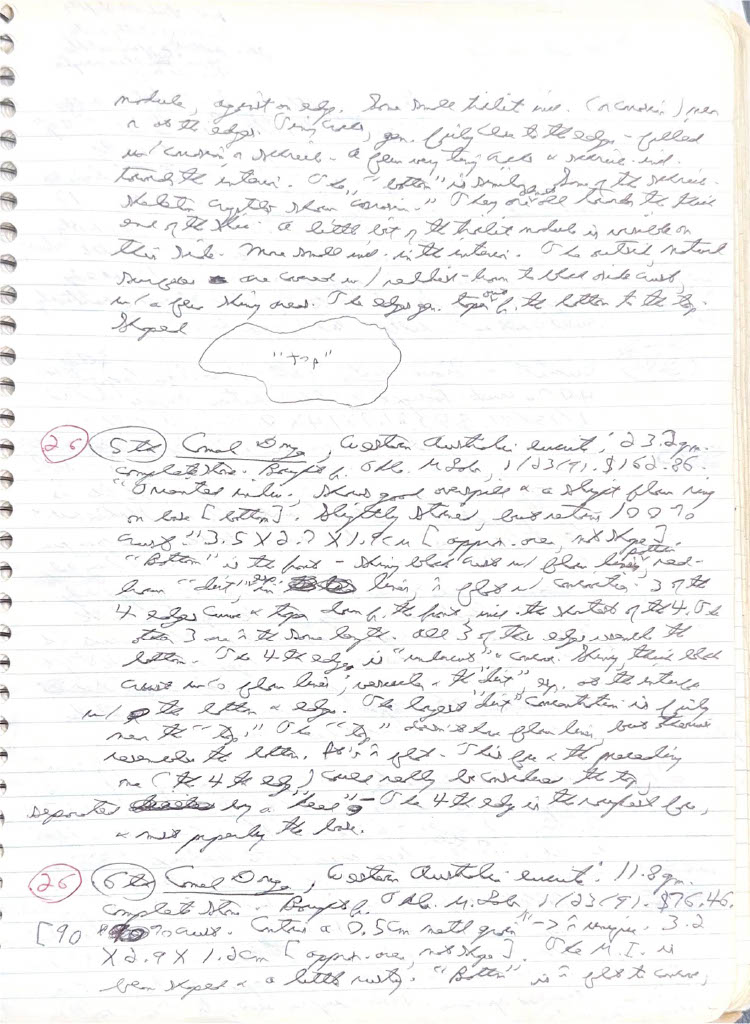 module, against an edge. Some small troilite incl. (n corrosion) near
n at the edges. Tiny cracks, gen. fairly close to the edge - filled
w/ corrosion n schreib. A few very tiny cracks & schreib. incl.
towards the interior. The "bottom" is similar. Some of the schreib.
skeleton crystals show "corrosion." They are all towards the thick
end of the slice. A little bit of the troilite nodule is visible on
this side. More small incl. in the interior. The outside, natural
surfaces are covered w/ reddish-brown to black oxide crust,
w/ a few shiny areas. The edges gen. taper fr. the bottom to the top.
Shaped
"top"
26 5th Camel Donga, Western Australia eucrite; 23.2 gm.
complete stone. Bought fr. The M. Lab, 1/23/91. $162.86.
"Oriented indiv., shows good overspill & a slight flow ring
on base [bottom]. Slightly stained, but retains 100%
crust" 3.5 X 2.7 X 1.9 cm [approx. area, not shape].
"Bottom" is the front - shiny black crust w/ flow lines, red-
brown "dirt," lines, n flat w/ concavities. 3 of the
4 edges curve & taper down fr. the front, incl. the shortest of the 4. The
other 3 are n the same length. All 3 of these edges resemble the
bottom. The 4th edge, is "undercut" & concave. Shiny, thick black
crust w/o flow lines, & the "dirt" esp. at the interface
w/ the bottom & edge. The largest "dirt" concentration is fairly
near the "top." The "top" doesn't have flow lines, but otherwise
resembles the bottom. It's n flat. This face & the preceding
one (the 4th edge) could really be considered the top,
separated by a "keel" - The 4th edge is the roughest face,
& most properly the base.
26 6th Camel Donga, Western Australia eucrite. 11.8 gm.
complete stone. Bought fr. The M. Lab 1/23/91. $76.46.
[90 % crust. Contains a 0.5 cm metal grain -> n unique. 3.2
X 2.9 X 1.2 cm [approx. area, not shape]. The M.I. is
bean shaped & a little rusty. "Bottom" is n flat to concave,